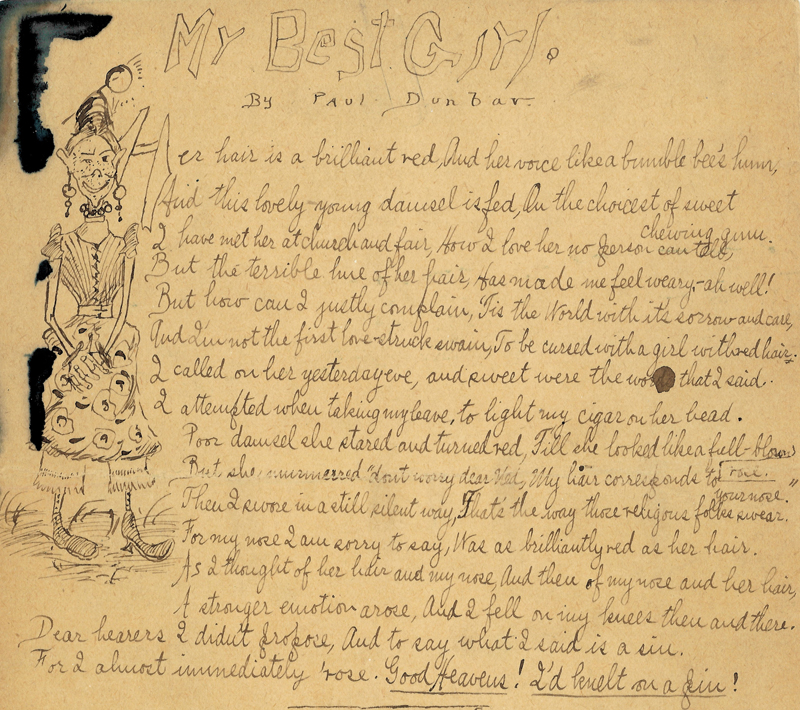 My Best Girl.
By Paul Dunbar.
Her hair is a brilliant red, And her voice like a bumble bee's hum,
And this lovely young damsel is fed, On the choicest of sweet
chewing gum.
I have met her at church and fair, How I love her no person can tell,
But the terrible hue of her hair, Has made me feel weary,- ah well!
But how can I justly complain, Tis the World with it's sorrow and care,
And I'm not the first love-struck swain, To be cursed with a girl with red hair.
I called on her yesterday eve, and sweet were the wo that I said.
I attempted when taking my leave, to light my cigar on her head.
Poor damsel she stared and turned red, Till she looked like a full-blown
rose.
But she murmerred "dont worry dear, My hair corresponds to
your nose."
Then I swore in a still silent way, That's the way those religous folks swear.
For my nose I am sorry to say, Was as brilliantly red as her hair.
As I thought of her hair and my nose, And then of my nose and her hair,
A stronger emotion arose, And I fell on my knees then and there.
Dear hearers I didn't propose, And to say what I said is a sin.
For I almost immediately 'rose. Good Heavens! I'd knelt on a pin!